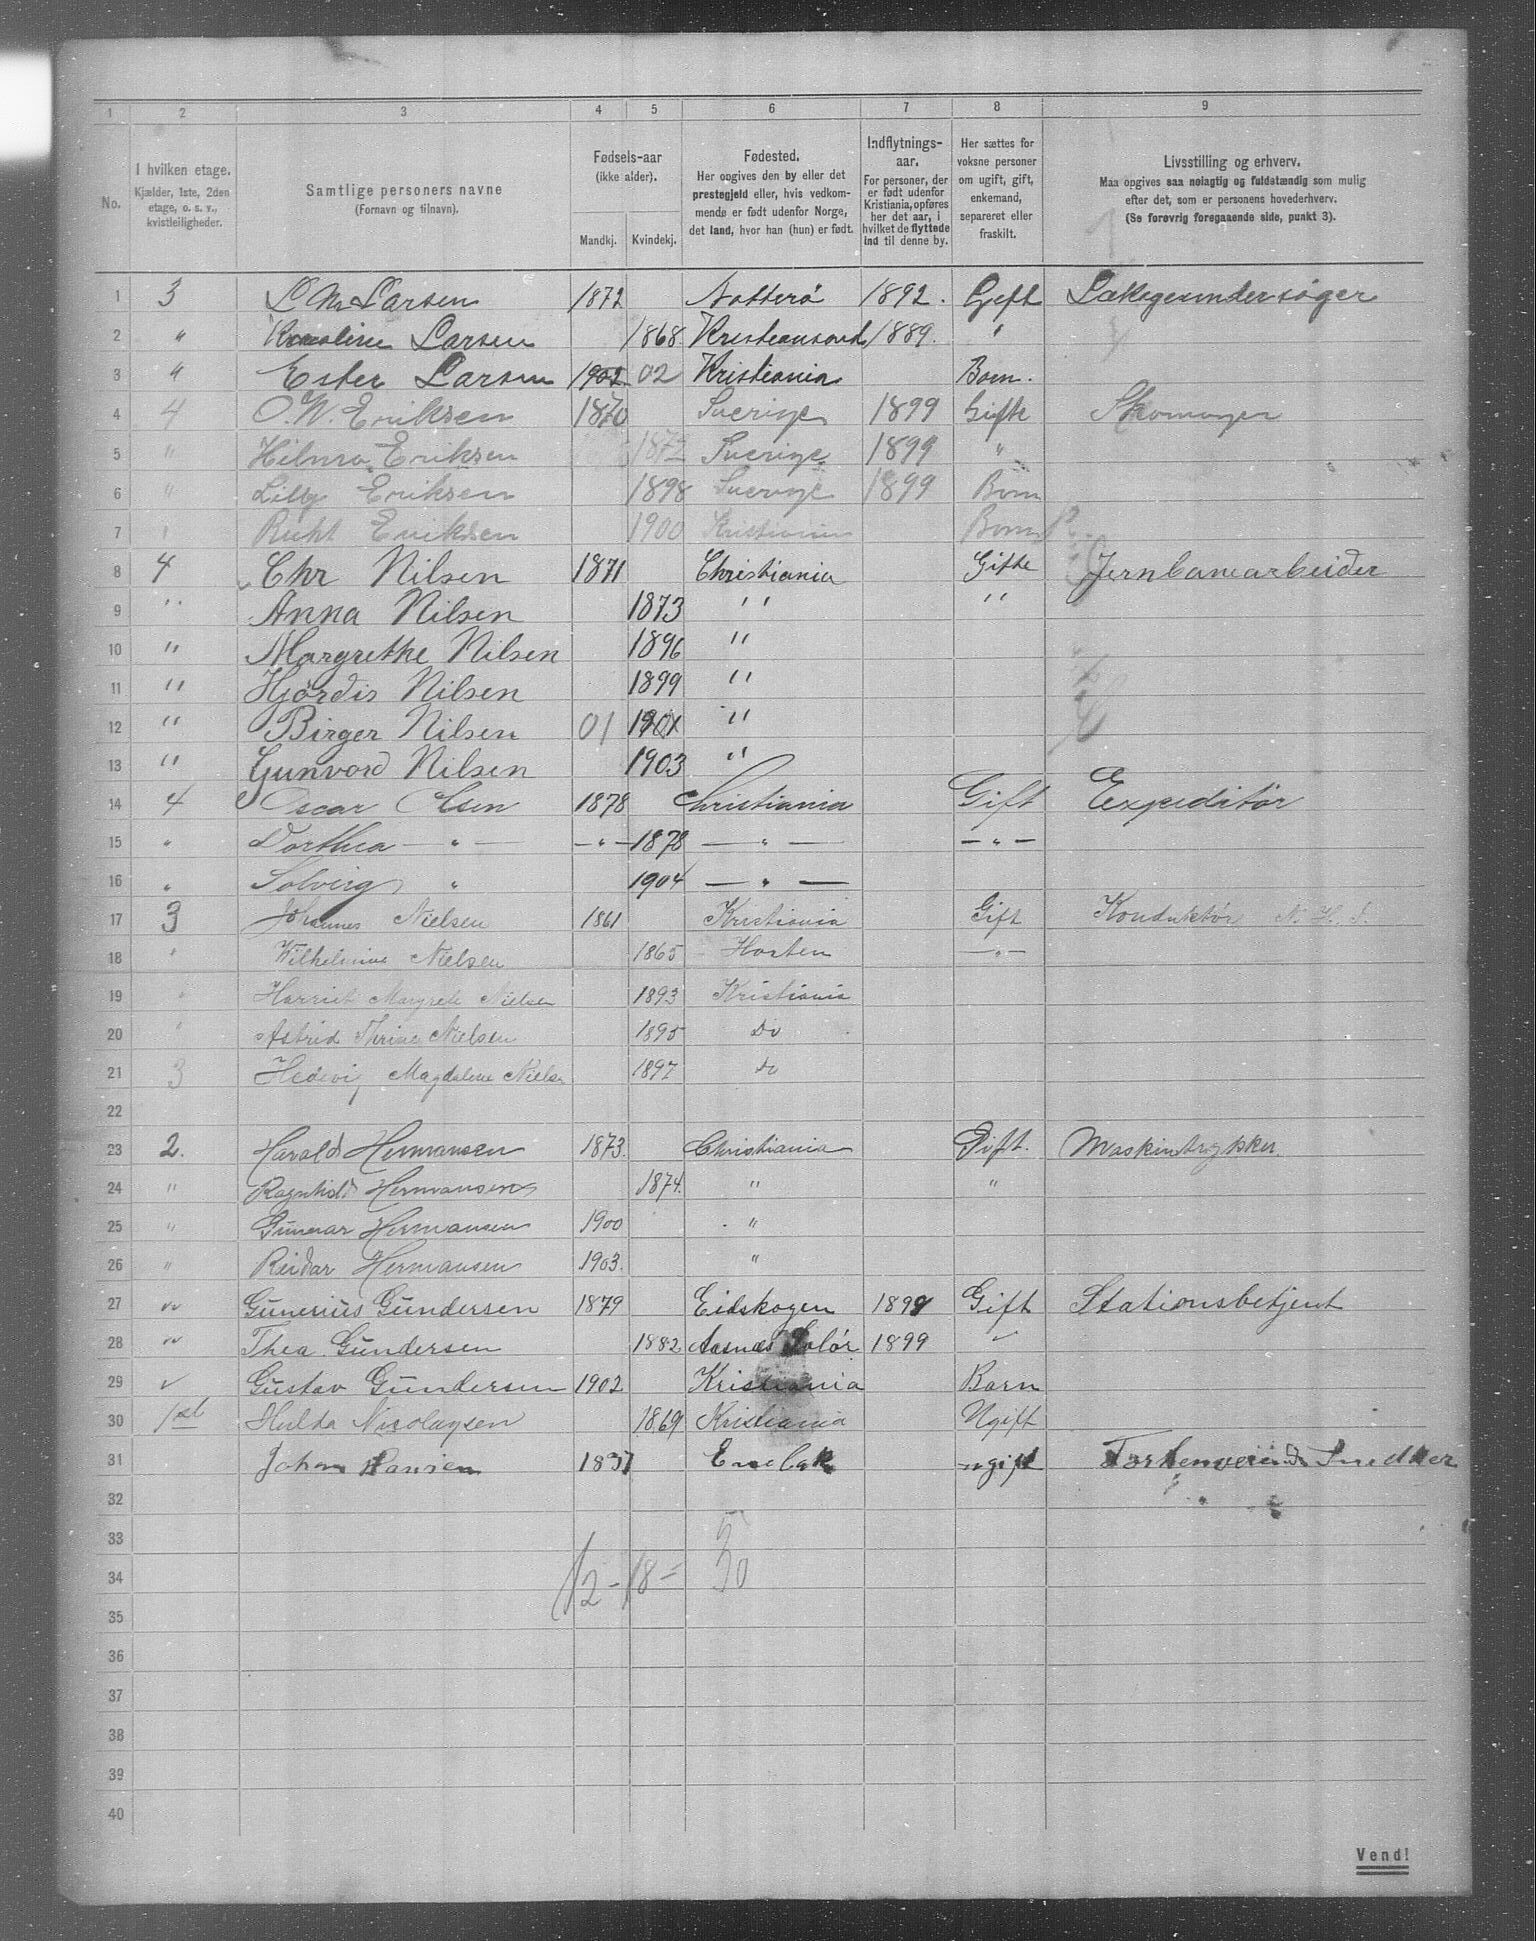 1 2 3 4 5 6 7 8 9
No.
I hvilken etage.
Kjælder, 1ste, 2den
etage, o. s. v.,
kvistleiligheder.
Samtlige personers navne
(Fornavn og tilnavn).
Fødsels-aar
(ikke alder).
Mandkj. Kvindekj.
Fødested.
Her opgives den by eller det
prestegjeld eller, hvis vedkom-
mende er født udenfor Norge,
det land, hvor han (hun) er født.
Indflytnings-
aar.
For personer, der
er født udenfor
Kristiania, opføres
her det aar, i
hvilket de flyttede
ind til denne by.
Her sættes for
voksne personer
om ugift, gift,
enkemand,
separeret eller
fraskilt.
Livsstilling og erhverv.
Maa opgives saa nøiagtig og fuldstændig som mulig
efter det, som er personens hovederhverv.
(Se forøvrig foregaaende side, punkt 3).
1 3 L M Larsen 1872 Nøtterø 1892. Gift
2 " Larsen 1868. 1889. "
3 " Ester Larsen 1902 02 Kristiania Barn.
4 4 O. W. Eriksen 1870 Sverige 1899 Gifte Skomager
5 " Hilma Eriksen 1872 Sverige 1899 "
6 " Lilly Eriksen 1898 Sverige 1899 Barn
7 " Eriksen 1900 Kristiania Barn
8 4 Chr Nilsen 1871 Christiania Gifte Jernbanearbeider
9 " Anna Nilsen 1873 " "
10 " Margrethe Nilsen 1896 "
11 " Hjørdis Nilsen 1899 "
12 " Birger Nilsen 01 1901 "
13 " Gunvord Nilsen 1903 "
14 4 Oscar Olsen 1878 Christiania Gift Expeditør
15 " Dorthea — " — — " — 1878 — " — — " —
16 " Solveig " 1904 — " —
17 3 Johannes Nielsen 1861 Kristiania Gift Konduktør N. H. J.
18 " Wilhelmine Nielsen 1865 Horten — " —
19 " Harriet Margrete Nielsen 1893 Kristiania
20 " Astrid Thrine Nielsen 1895 Do
21 3 Hedevig Magdalene Nielsen 1897 Do
22
23 2. Harald Hermansen 1873. Christiania Gift. Maskintrykker.
24 " Ragnhild Hermansen 1874. " "
25 " Gunnar Hermansen 1900 "
26 " Reidar Hermansen 1903. "
27 " Gunerius Gundersen 1879 Eidskogen 1899 Gift Stationsbetjent
28 " Thea Gundersen 1882 Aasnæs Solør 1899 "
29 " Gustav Gundersen 1902 Kristiania Barn
30 1st Hulda Nicolaysen 1869 Kristiania Ugift
31 Johan Hansen 1837 Enebak ugift Snedker
32
33
34 12 - 18 = 30
35
36
37
38
39
40
Vend!